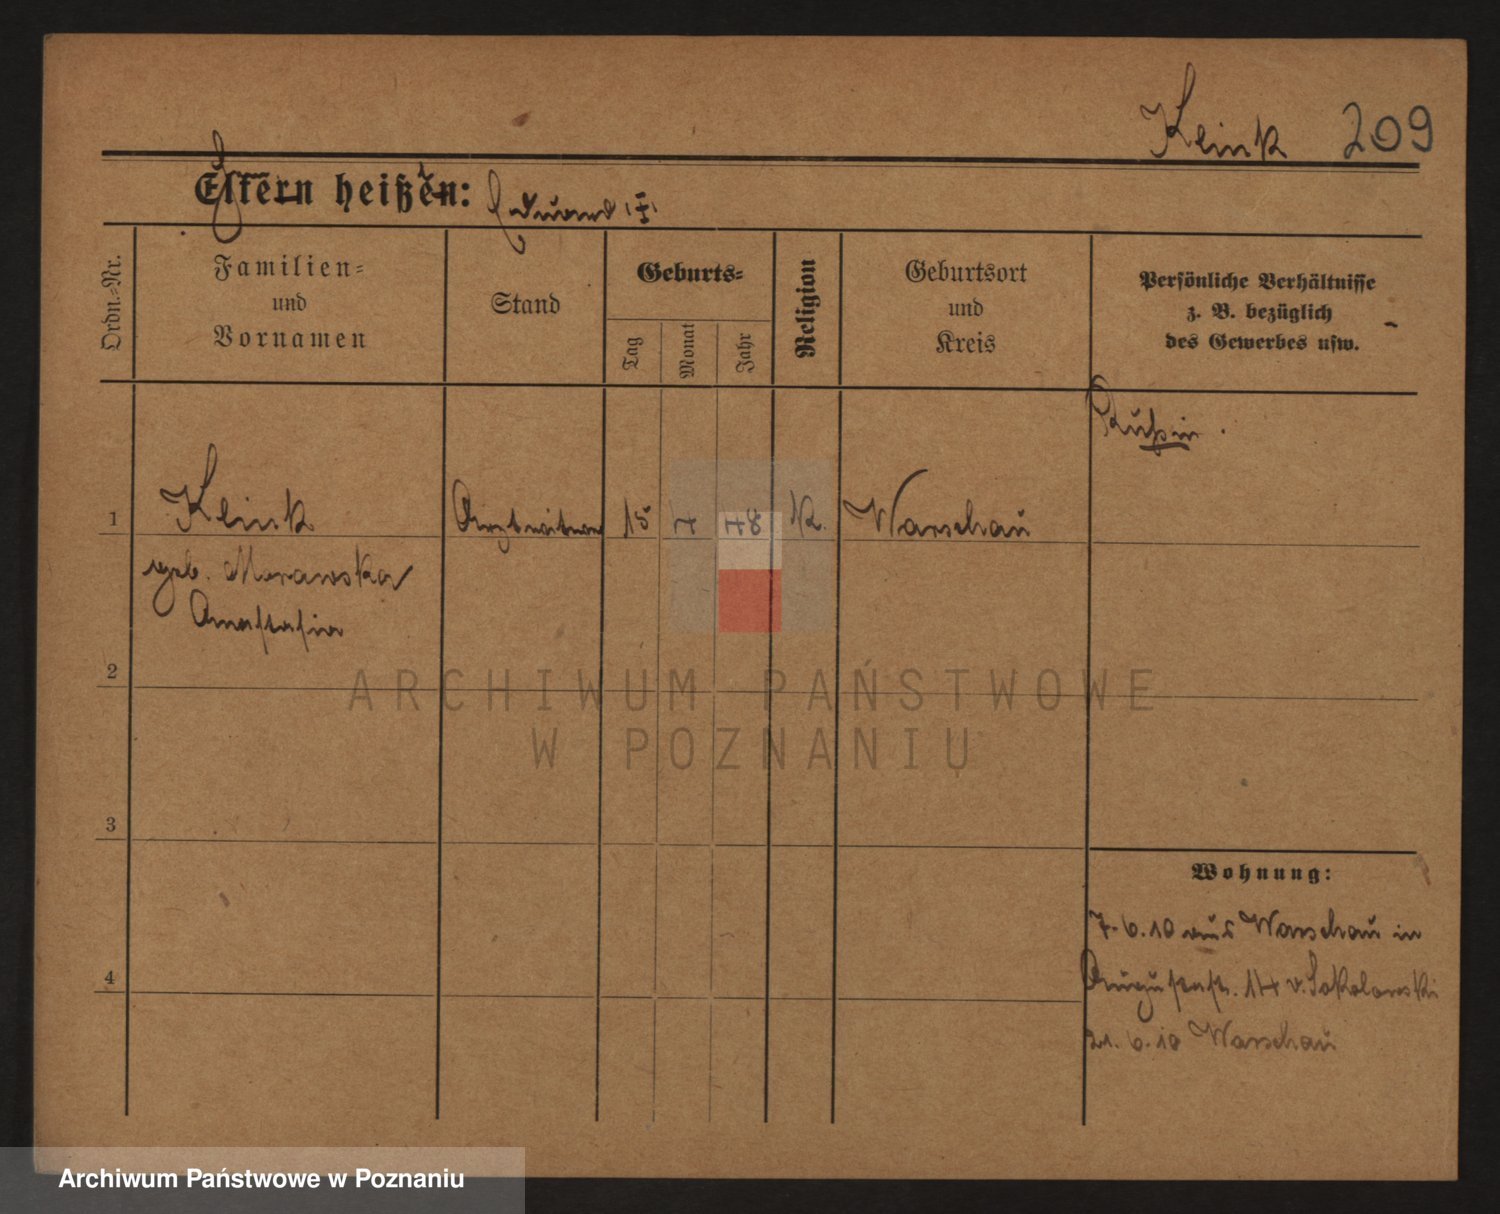 Keink 209
Eltern heißen: Eduard
Ordn.=Nr.
Familien=
und
Vornamen
Stand
Geburts=
Tag
Monat
Jahr
Religion
Geburtsort
und
Kreis
Persönliche Verhältnisse
z. B. bezüglich
des Gewerbes usw.
Rußin.
1 Keink Arztwitwe 15 7 78 K. Warschau
geb. Morawska
Anastasia
2
3
4
Wohnung:
7.6.10 aus Warschau in
Augustastr. 14 v. Sokolowski
21.6.10 Warschau
ARCHIWUM PAŃSTWOWE
W POZNANIU
Archiwum Państwowe w Poznaniu